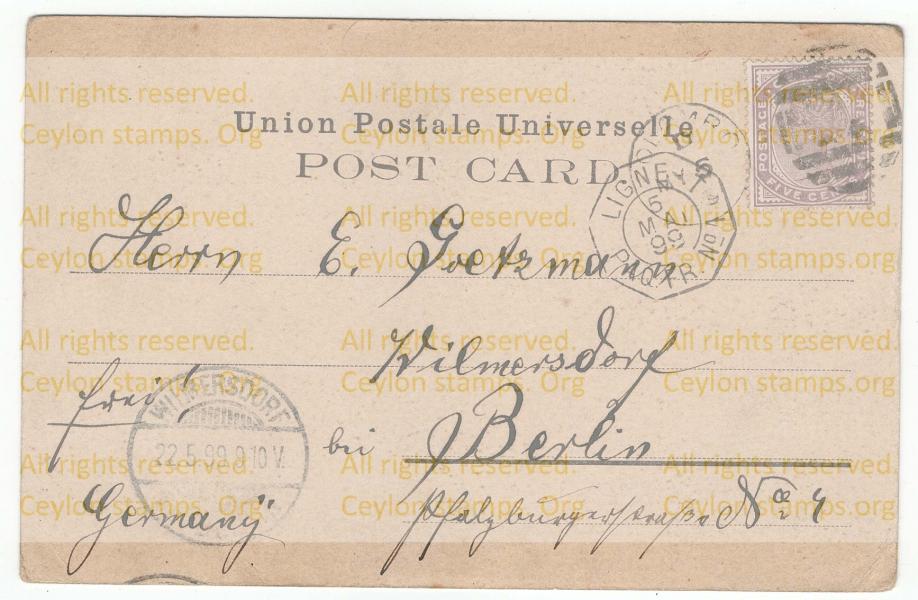 All rights reserved. All rights reserved. All rights reserved.
Ceylon stamps. Org Ceylon stamps. Org Ceylon stamps.org
Union Postale Universelle
POST CARD
POSTAGE
FIVE CE
LIGNE N
PAQ FR
5
MAI
99
All rights reserved. All rights reserved. All rights reserved.
Ceylon stamps. Org Ceylon stamps. Org Ceylon stamps.org
Herrn E. Goetzmann
All rights reserved. All rights reserved. All rights reserved.
Ceylon stamps. Org Ceylon stamps. Org Ceylon stamps. Org
Wilmersdorf
frei!
WILMERSDORF
22.5.99.9.10 V.
bei Berlin
All rights reserved. All rights reserved. All rights reserved.
Ceylon stamps. Org Ceylon stamps. Org Ceylon stamps. Org
Germany
Pfalzburgerstraße No 4